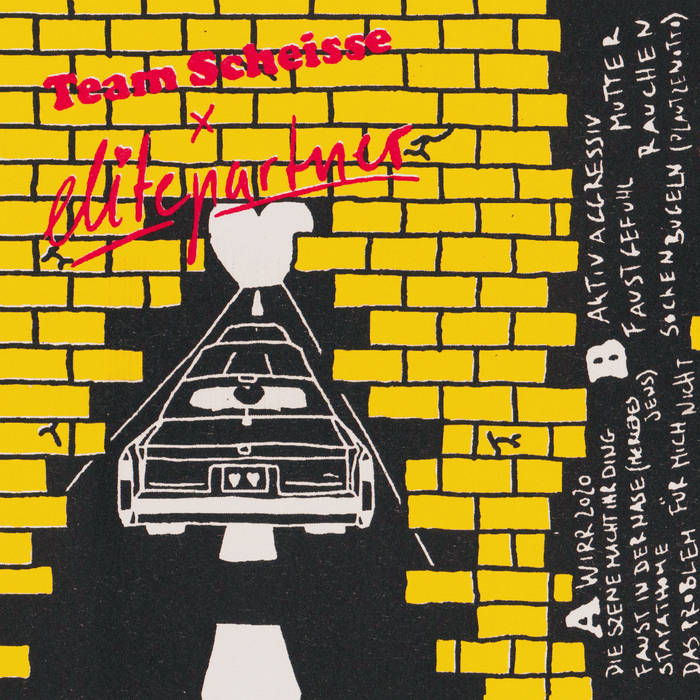 Team Scheisse
x
elitepartner
A WIRR 2020
DIE SZENE MACHT IHR DING
FAUST IN DER NASE (MERCEDES JENS)
STAYATHOME
DAS PROBLEM FÜR MICH NICHT
B AKTIV AGGRESSIV
FAUSTGEFÜHL MUTTER
RAUCHEN
SOCKEN BÜGELN (PLNTZEMOTTO)